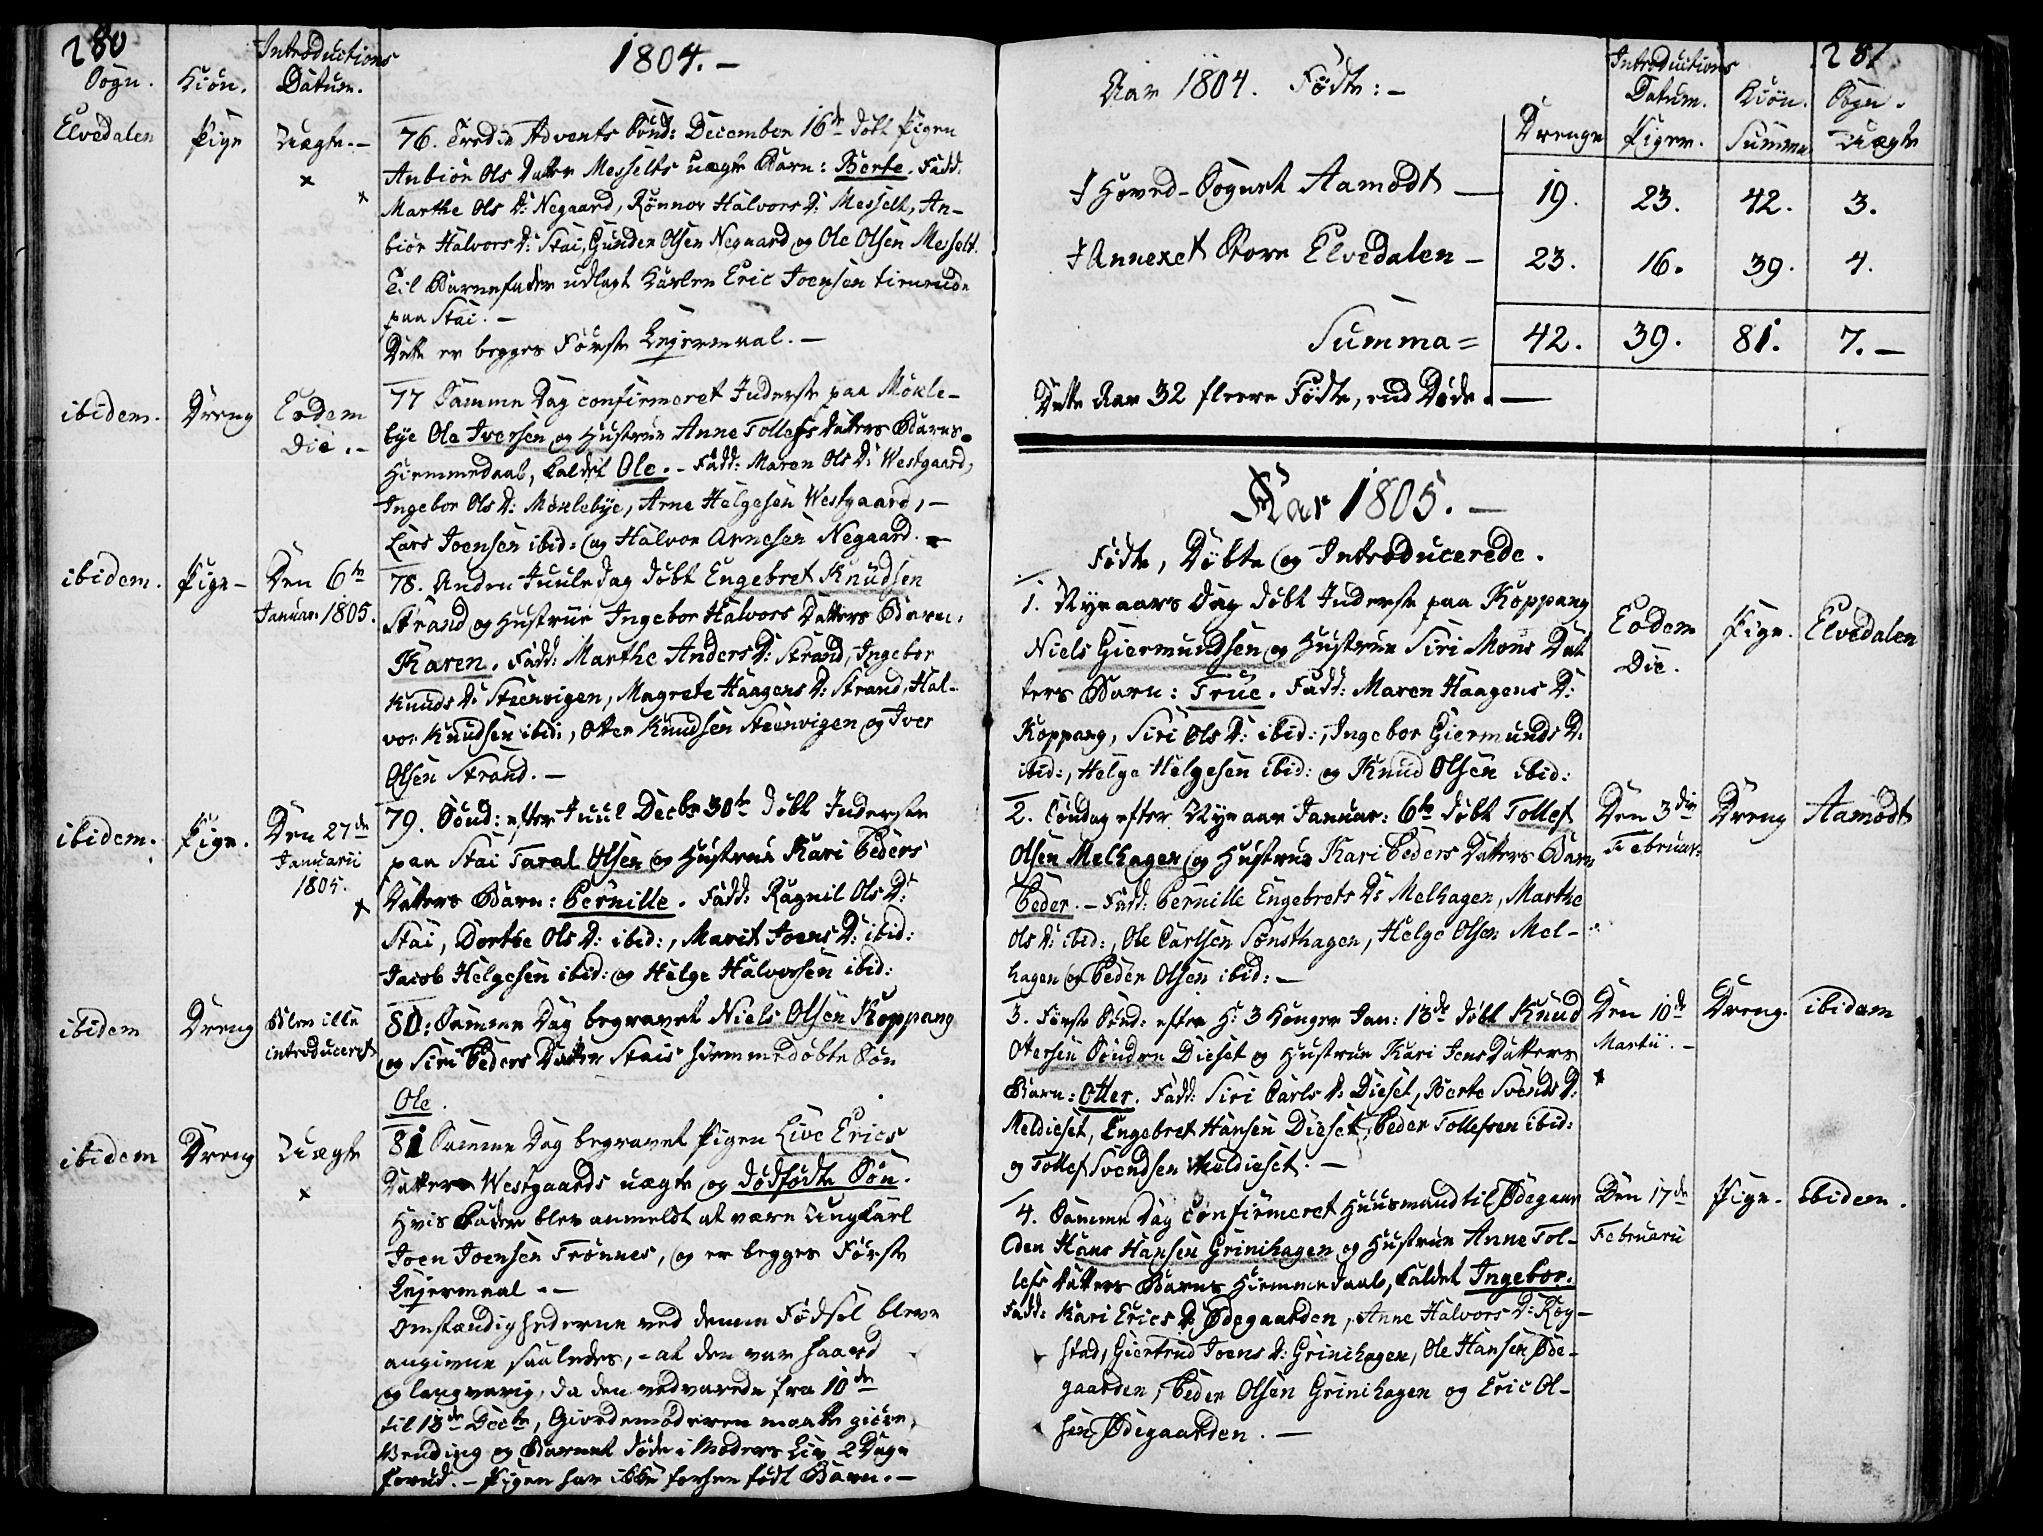 280
Introductions
1804. –
Sogn. Kiön. Datum.
Elvedalen Pige Uægte. –
76. Tredie Advents Sönd: December 16de döbt Pigen
Anbiör Ols Datter Messelts uægte Barn: Berte. Fadd.
Marthe Ols D: Negaard, Rönnov Halvors D: Messelt, An-
biör Halvors D: Stai, Gunder Olsen Negaard og Ole Olsen Messelt.
Til Barnefader udlagt Karlen Eric Joensen tienende
paa Stai. –
Dette er begges Förste Lejermaal. –
ibidem. Dreng Eodem
Die. –
77 Samme Dag confirmeret Inderste paa Mökle-
bÿe Ole Iversen og Hustrue Anne Tollefs Datters Barns
Hiemmedaab, kaldet Ole. – Fadd: Maren Ols D: Westgaard,
Ingebor Ols D: Möklebÿe, Arne Helgesen Westgaard, –
Lars Joensen ibid: og Halvor Arnesen Negaard. –
ibidem. Pige – Den 6te
Januar. 1805.
78. Anden Juule Dag döbt Engebret Knudsen
Strand og Hustrue Ingebor Halvors Datters Barn:
Karen. Fadd: Marthe Anders D: Strand, Ingebor
Knuds D: Steenvigen, Magrete Haagens D: Strand, Hal-
vor Knudsen ibid:, Otter Knudsen Steenvigen og Iver
Olsen Strand. –
ibidem. Pige. Den 27de
Januarii
1805.
79. Sönd: efter Juul Decbr 30te döbt Inderste
paa Stai Taral Olsen og Hustrue Kari Peders
Datters Barn: Pernille. Fadd: Ragnil Ols D:
Stai, Dorthe Ols D: ibid:, Marit Joens D: ibid:
Jacob Helgesen ibid: og Helge Halvorsen ibid:
ibidem Dreng Blev ikke
introduceret
80: Samme Dag begravet Niels Olsen Koppang
og Siri Peders Datter Stais hiemmedöbte Sön
Ole.
ibidem Dreng Uægte
81 Samme Dag begravet Pigen Live Erics
Datters Westgaards uægte og dödfödte Sön.
Hvis Fader blev anmeldt at være Ungkarl
Joen Joensen Trönnes, og er begges Förste
Lejermaal. –
Omstændighederne ved denne Födsel bleve
angivne saaledes, – at den var haard
og langvarig, da den vedvarede fra 10de
til 13de Decbr, Giordemoderen maatte giöre
Vending og Barnet döde i Moders Liv 2 Dage
forud. – Pigen har ikke forhen födt Barn. –
281
Introductions
Aar 1804. Födte: –
Datum. Kiön. Sogn.
Drenge Piger. Summa Uægte
I Hoved-Sognet Aamodt – 19. 23. 42. 3.
I Annexet Store Elvedalen – 23. 16. 39. 4.
Summa = 42. 39. 81. 7. –
Dette Aar 32 fleere Födte, end Döde. –
Aar 1805. –
Födte, Döbte og Introducerede.
1. Nyeaars Dag döbt Inderste paa Koppang
Niels Giermundsen og Hustrue Siri Mons Dat
ters Barn: True. Fadd: Maren Haagens D:
Koppang, Siri Ols D: ibid:, Ingebor Giermunds D:
ibid:, Helge Helgesen ibid: og Knud Olsen ibid:
Eodem
Die. Pige. Elvedalen
2. Söndag efter Nyeaar Januar: 6te döbt Tollef
Olsen Melhagen og Hustrue Kari Peders Datters Barn
Peder. – Fadd: Pernille Engebrets D: Melhagen, Marthe
Ols D: ibid:, Ole Carlsen Sönsthagen, Helge Olsen Mel-
hagen og Peder Olsen ibid: –
Den 3die
Februar: Dreng Aamodt
3. Förste Sönd: efter H: 3 Konger Jan: 13de döbt Knud
Ottersen Söndre Dieset og Hustrue Kari Jens Datters
Barn: Otter. Fadd: Siri Carls D: Dieset, Berte Svends D:
Meldieset, Engebret Hansen Dieset, Peder Tollefsen ibid:
og Tollef Svendsen Meldieset. –
Den 10de
Martii. – Dreng. ibidem
4. Samme Dag confirmeret Huusmand til Ödegaar
den Hans Hansen Grinihagen og Hustrue Anne Tol-
lefs Datters Barns Hiemmedaab, kaldet Ingebor.
Fadd: Kari Erics D: Ödegaarden, Anne Halvors D: Rög-
stad, Giertrud Joens D: Grinihagen, Ole Hansen Öde-
gaarden, Peder Olsen Grinihagen og Eric Ol-
sen Ödegaarden. –
Den 17de
Februarii Pige. ibidem.